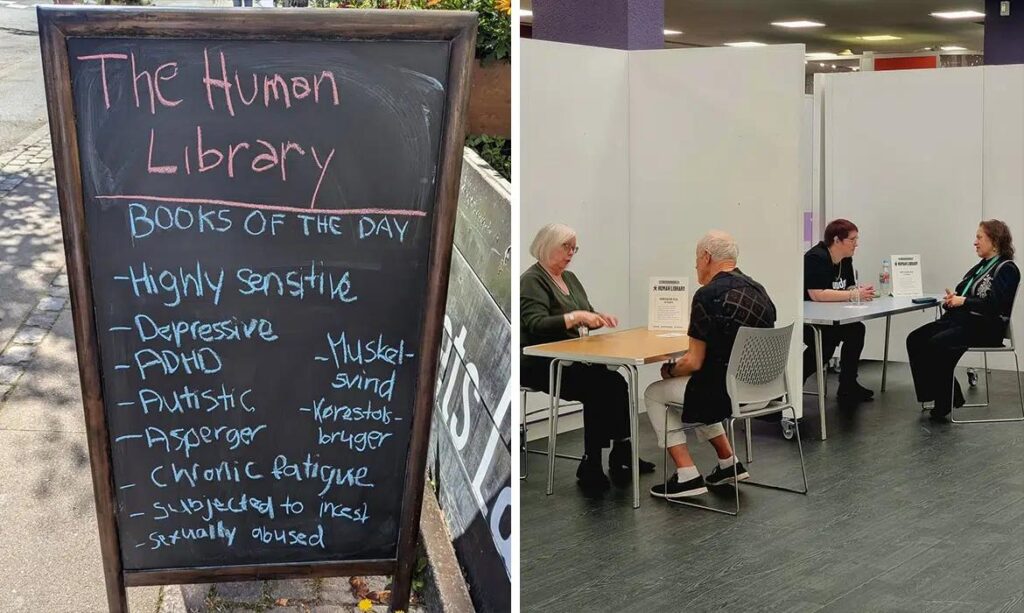 The Human
Library
BOOKS OF THE DAY
-Highly sensitive
- Depressive
- ADHD
- Autistic
- Asperger
- Chronic fatigue
- Subjected to incest
- sexually abused
- Muskel-
svind
- Kørestok-
bruger
HUMAN LIBRARY
HUMAN LIBRARY